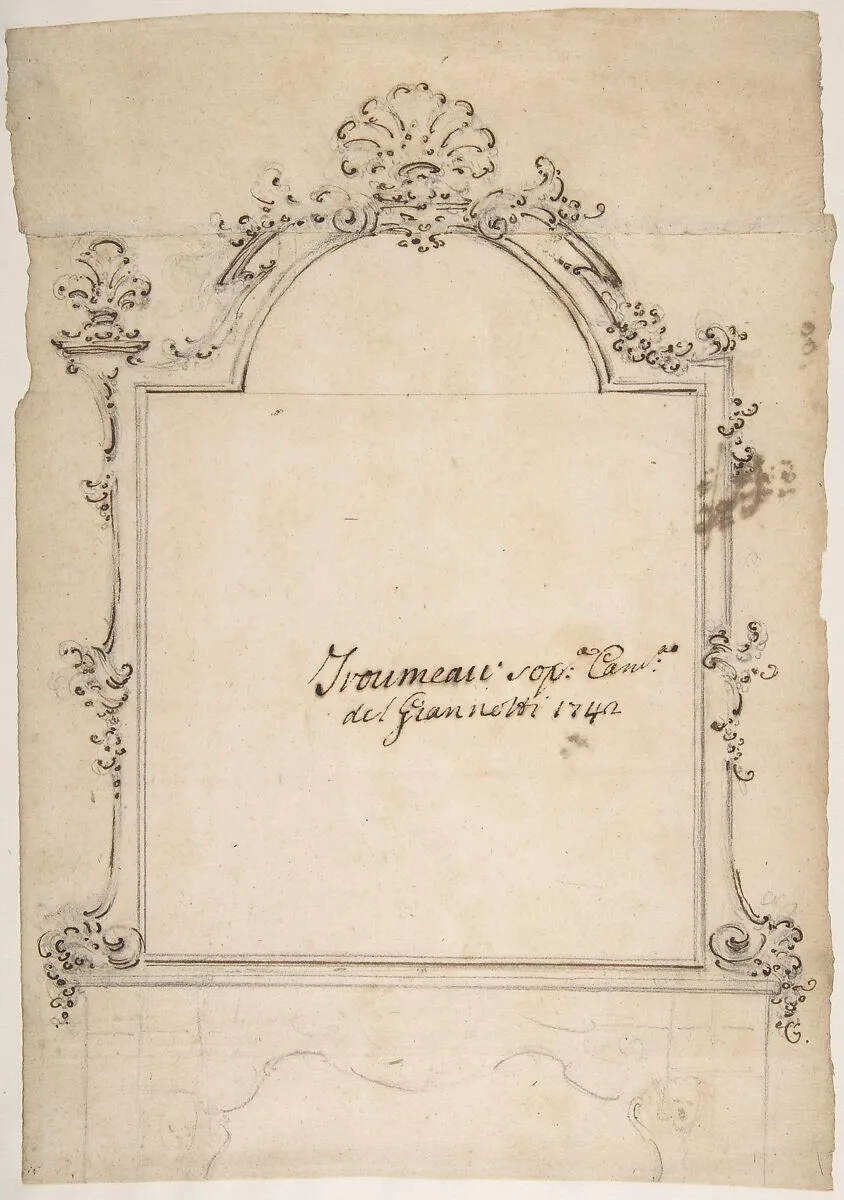 Troumeau sop:ᵃ Cam:ᵒ
del Giannotti 1742